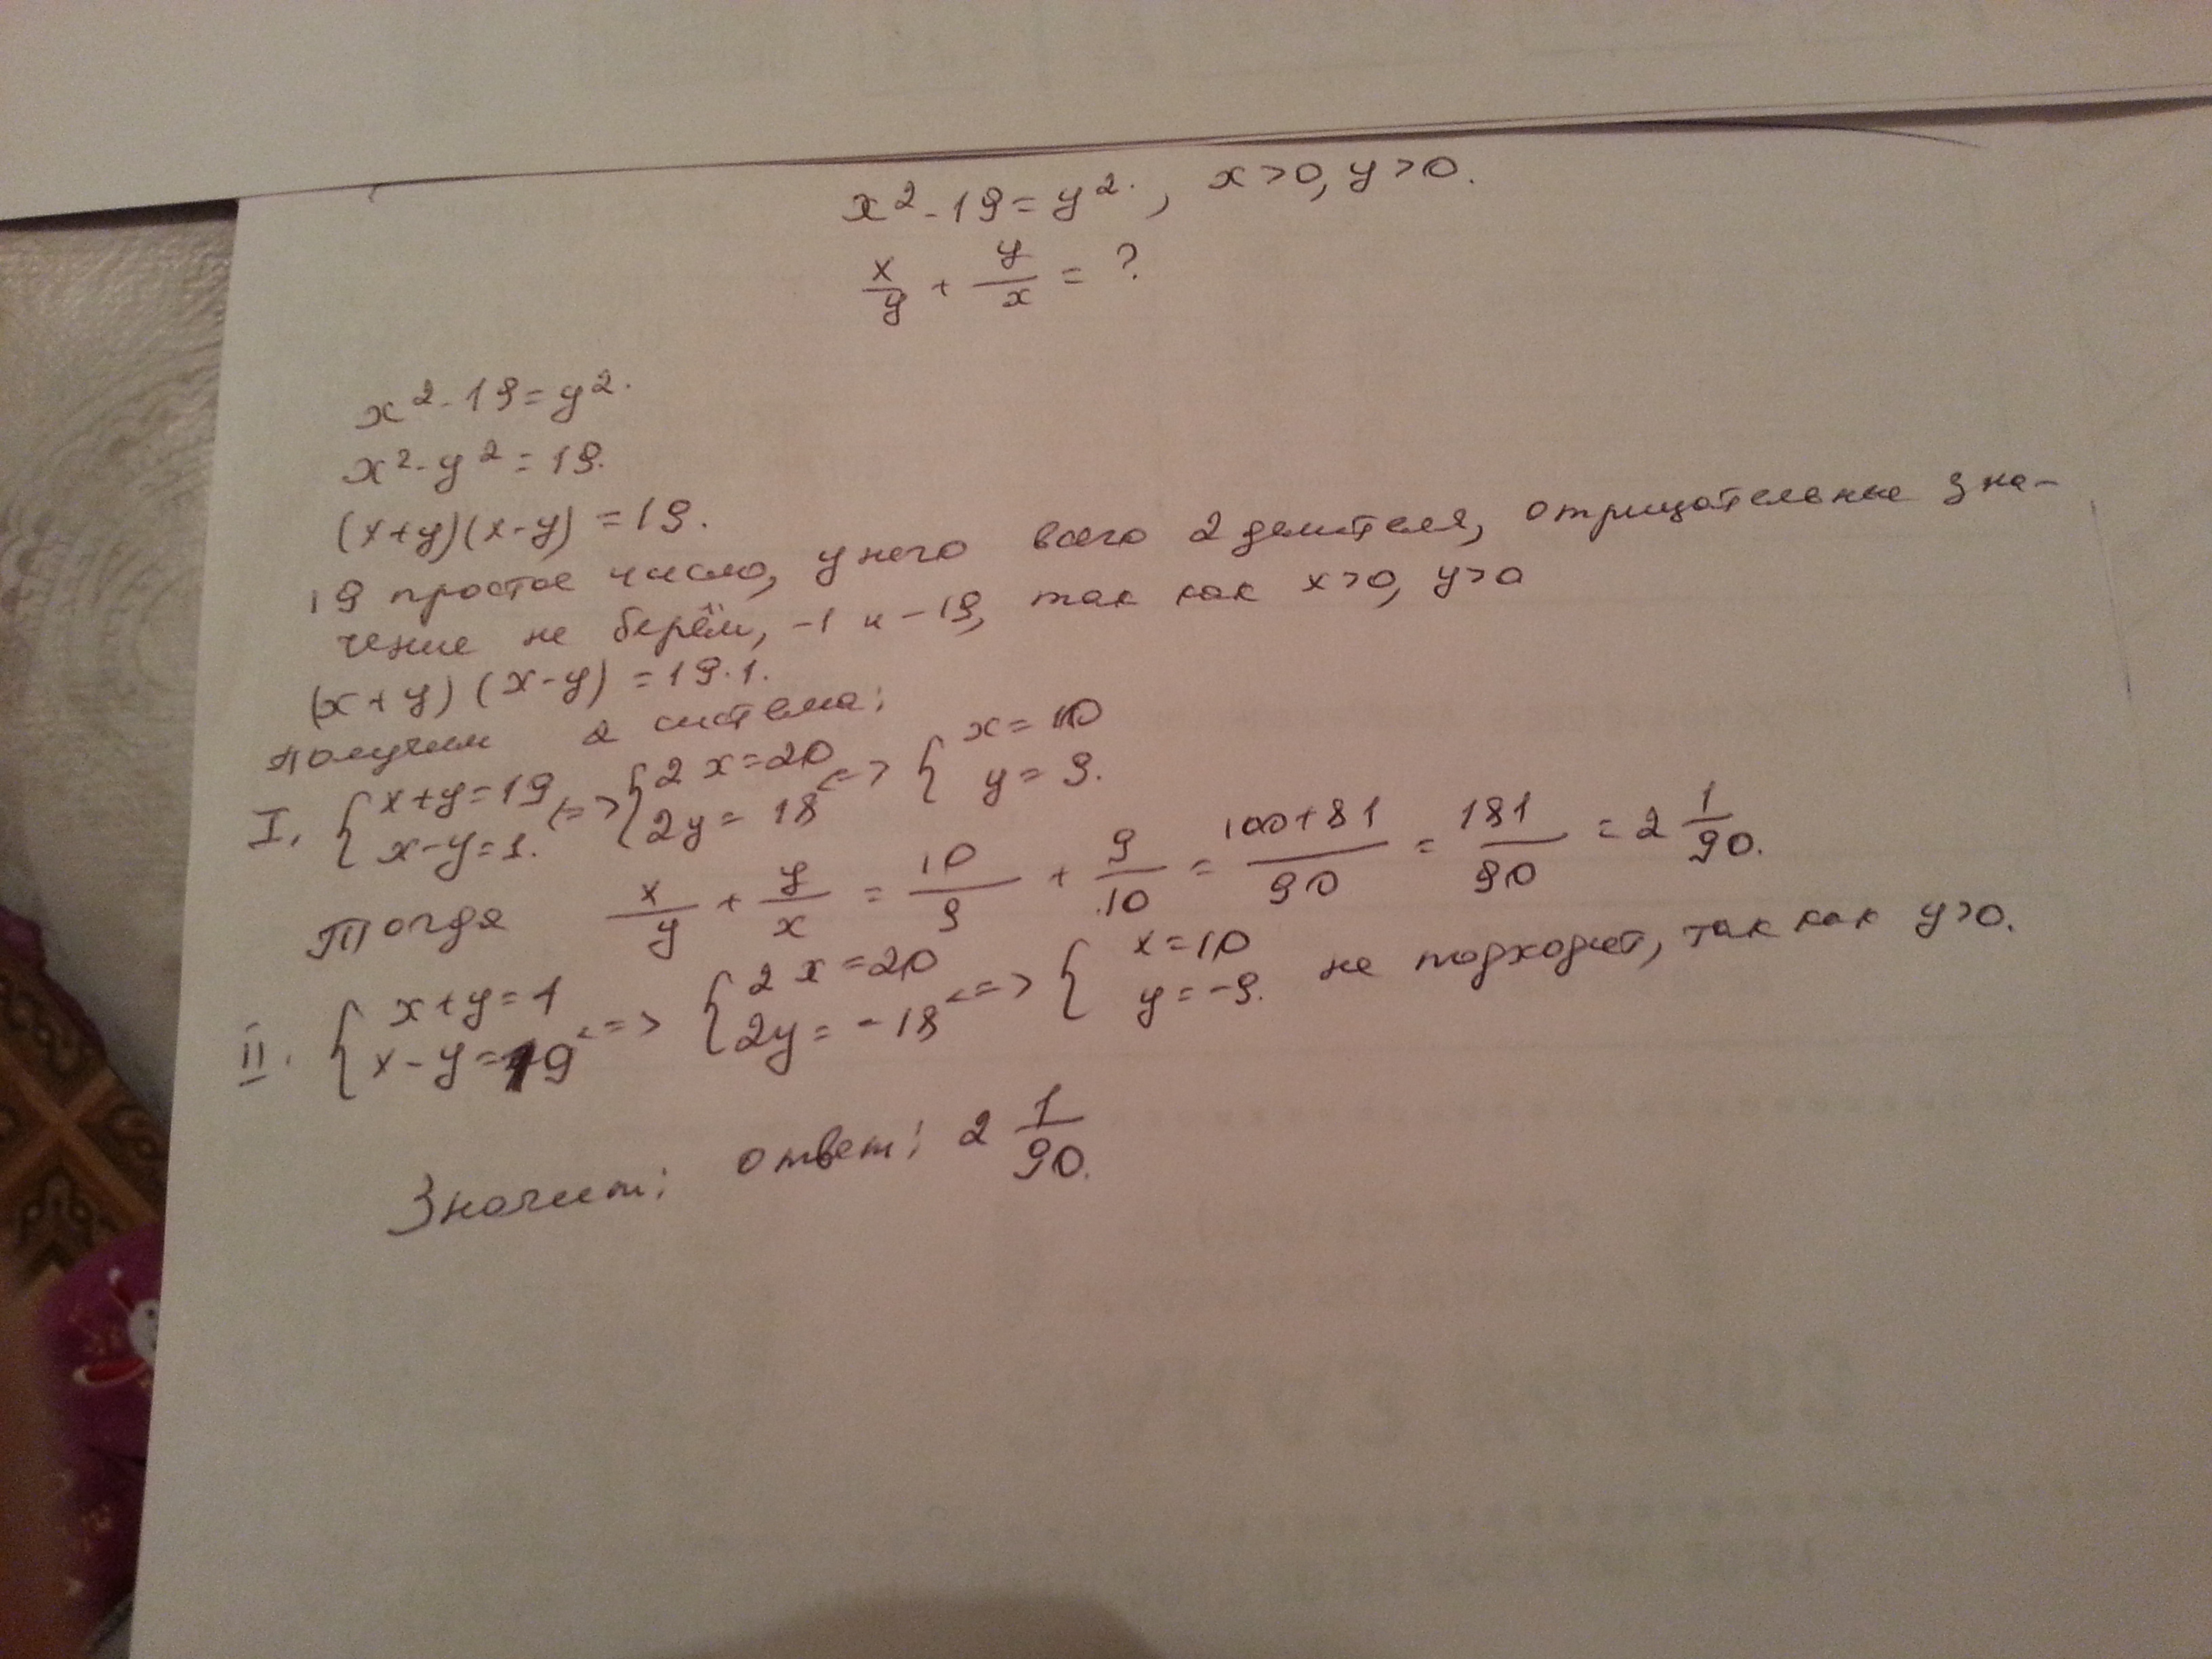 x² - 19 = y², x > 0, y > 0.
x/y + y/x = ?
x² - 19 = y².
x² - y² = 19.
(x+y)(x-y) = 19.
19 простое число, у него всего 2 делителя, отрицательные зна-
чение не берём, -1 и -19, так как x>0, y>0
(x+y)(x-y) = 19·1.
получим 2 система:
I. { x+y=19 x-y=1. <=> { 2x=20 2y=18 <=> { x=10 y=9.
Тогда x/y + y/x = 10/9 + 9/10 = 100+81/90 = 181/90 = 2 1/90.
II. { x+y=1 x-y=19 <=> { 2x=20 2y=-18 <=> { x=10 y=-9. не подходит, так как y>0.
Значит: ответ: 2 1/90.